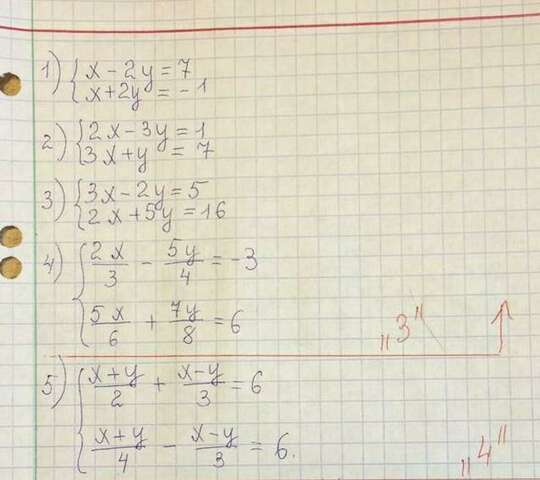 1) { x - 2y = 7
x + 2y = -1
2) { 2x - 3y = 1
3x + y = 7
3) { 3x - 2y = 5
2x + 5y = 16
4) { 2x/3 - 5y/4 = -3
5x/6 + 7y/8 = 6
„3”
5) { x+y/2 + x-y/3 = 6
x+y/4 - x-y/3 = 6.
„4”